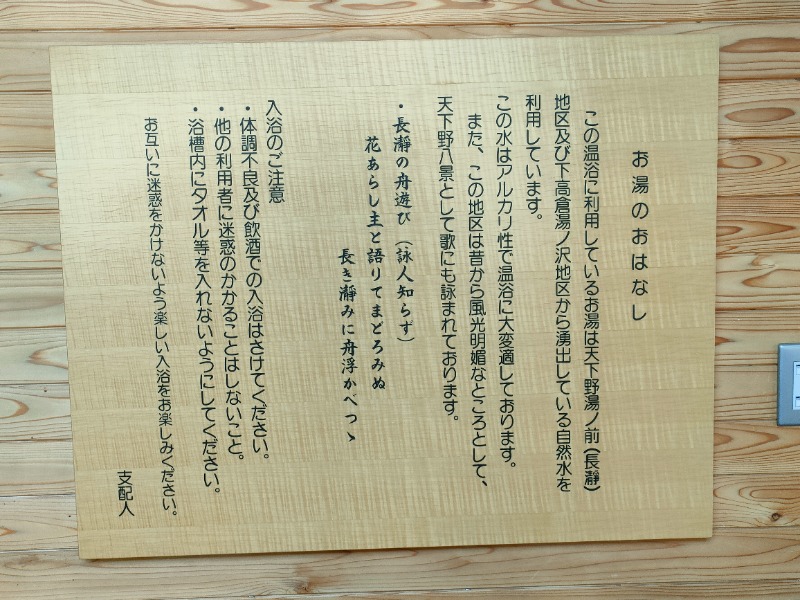 お湯のおはなし
この温浴に利用しているお湯は天下野湯ノ前(長瀞)
地区及び下高倉湯ノ沢地区から湧出している自然水を
利用しています。
この水はアルカリ性で温浴に大変適しております。
また、この地区は昔から風光明媚なところとして、
天下野八景として歌にも詠まれております。
・長瀞の舟遊び(詠人知らず)
花あらし主と語りてまどろみぬ
長き瀞みに舟浮かべつゝ
入浴のご注意
・体調不良及び飲酒での入浴はさけてください。
・他の利用者に迷惑のかかることはしないこと。
・浴槽内にタオル等を入れないようにしてください。
お互いに迷惑をかけないよう楽しい入浴をお楽しみください。
支配人